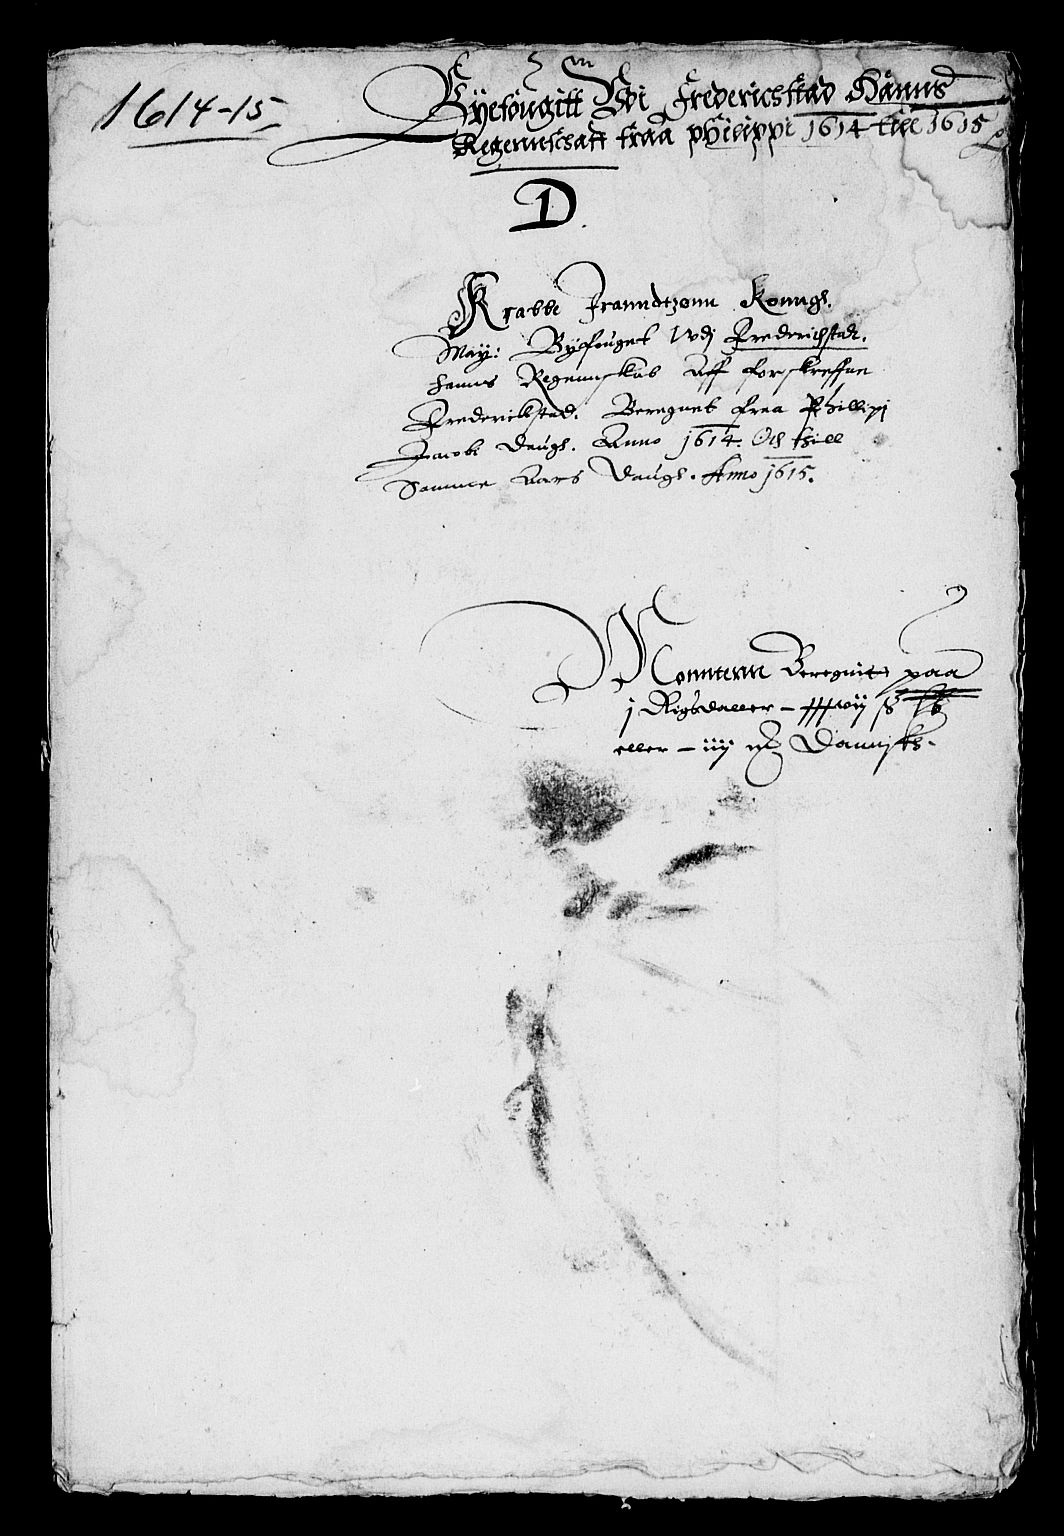 1614-15
Byefougitt Wdi Frederichstad Hanns
Regennschaff fraa philippi 1614 till 1615
D
Krabbe Franndtzönn Konngl.
May: Byfouget Vdj Frederichstad.
hanns Regennskab Aff forskreffne
Frederichstad. Beregnet fraa Phillipj
Jacobi Daugh. Anno 1614. Och till
Samme Aars Daugh. Anno 1615.
Mönnterin Beregnit paa
j Rigsdaller
eller - iiij mk Dannsks.